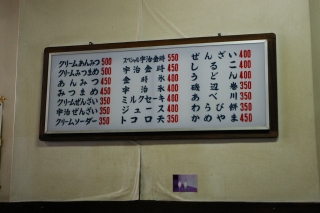 クリームあんみつ 500
クリームみつまめ 500
あんみつ 450
みつまめ 450
クリームぜんざい 350
宇治ぜんざい 350
クリームソーダー 350
スペシャル宇治金時 550
宇治金時 450
金時氷 400
宇治氷 400
ミルクセーキ 400
ジュース 400
トコロ天 350
ぜんざい 400
しるこ 400
うどん 400
磯辺巻 350
あべ川 350
わらび餅 350
かめやま 450